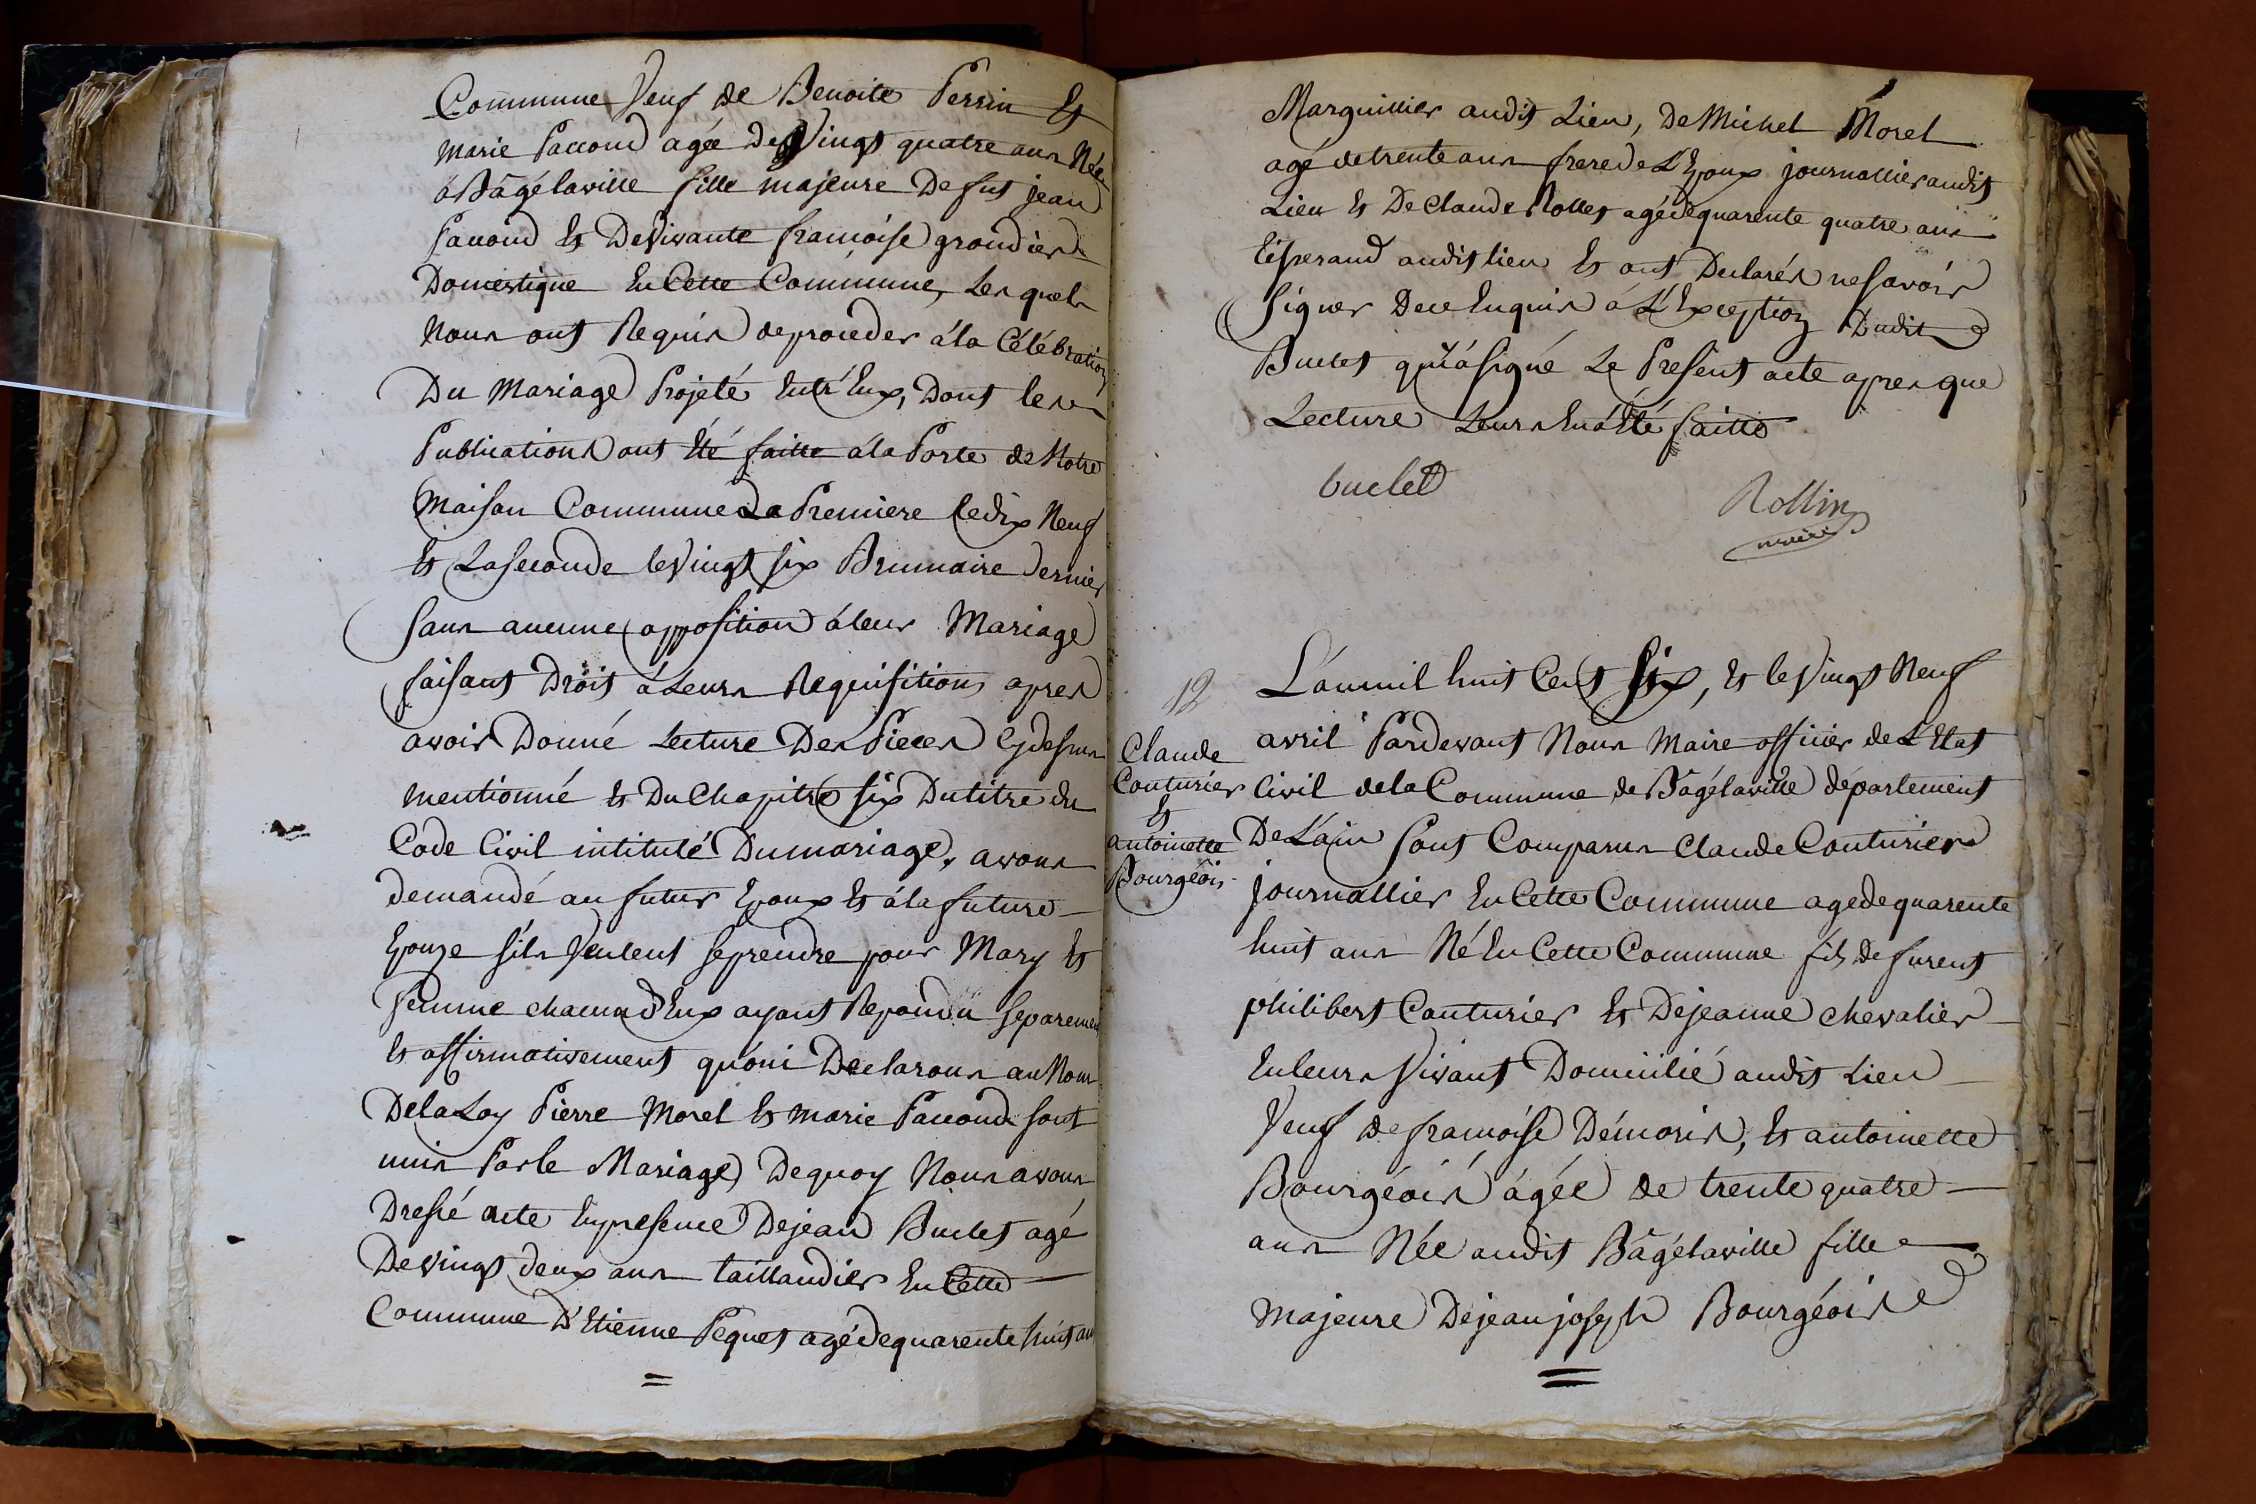 Commune Veuf de Benoite Perrin Et
marie Paccoud agée De Vingt quatre ans Née
à Bâgélaville fille majeure De fut jean
Paccoud Et De Vivante françoise grondier
Domestique En Cette Commune, Les quels
Nous ont Requis de proceder à la Célébration
Du Mariage Projété Entr'Eux, Dont les
Publications ont Eté faitte à la Porte de Notre
Maison Commune La Premiere le dix Neuf
Et La seconde le Vingt six Brumaire Dernier
Sans aucune opposition à leur Mariage
faisant Droit à Leurs Requisitions apres
avoir Donné Lecture Des Pieces Cydessus
mentionné Et Du Chapitre six Du titre du
Code Civil intitulé Du mariage, avons
demandé au futur Epoux Et à la future
Epouze s'ils Veulent se prendre pour Mary Et
Femme chacun d'Eux ayant Repondu separement
Et affirmativement qu'oui Declarons au Nom
De la Loy Pierre Morel Et marie Paccoud sont
unis Par le Mariage De quoy Nous avons
Dressé acte En presence De jean Buclet agé
De Vingt deux ans taillandier En Cette
Commune D'Etienne Pequet agé de quarente huit ans
Marguillier audit Lieu, De Michel Morel
agé de trente ans frere de L'Epoux journallier audit
Lieu Et De Claude Rollet agé de quarente quatre ans
tisserand audit lieu Et ont Declarés ne savoir
Signer De ce Enquis à L'Exception Dudit
Buclet qui à signé Le Present acte apres que
Lecture Leurs En à Eté faitte
buclet
Rollin
maire
12
Claude
Couturier
Et
antoinette
Bourgéois
L'an mil huit Cent Six, Et le Vingt Neuf
avril Pardevant Nous Maire officier de L'Etat
Civil de la Commune de Bâgélaville département
De L'ain Sont Comparus Claude Couturier
journallier En Cette Commune agé de quarente
huit ans Né En Cette Commune fils de furent
philibert Couturier Et De jeanne chevalier
En leurs Vivant Domicilié audit Lieu
Veuf de françoise Démoris, Et antoinette
Bourgéois âgée de trente quatre
ans Née audit Bâgélaville fille
majeure De jean joseph Bourgéois